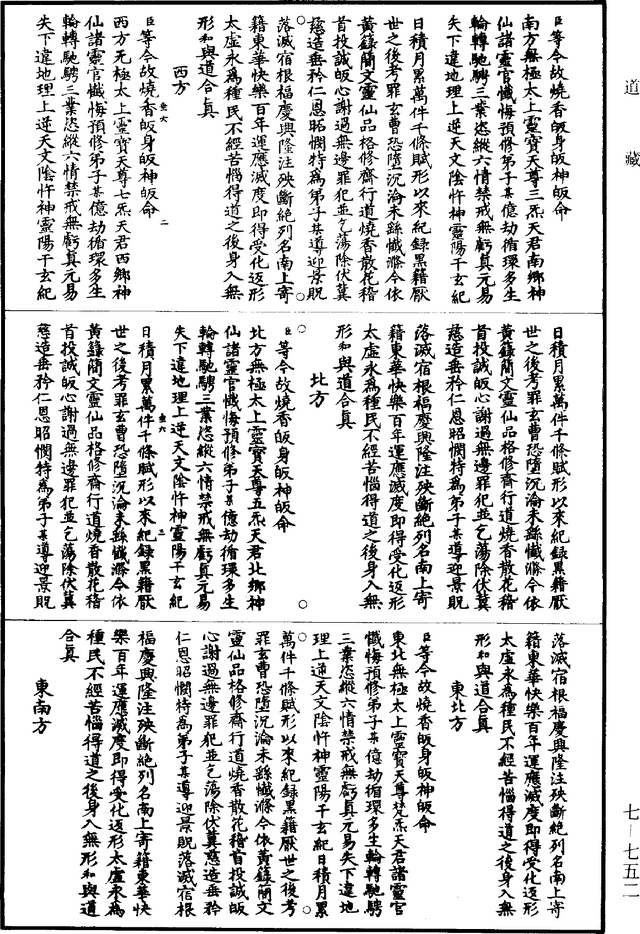 道藏
臣等今故燒香皈身皈神皈命
南方無極太上靈寶天尊三炁天君南鄉神
仙諸靈官懺悔預修弟子某億劫循環多生
輪轉馳騁三業恣縱六情禁戒無虧真元易
失下違地理上逆天文陰忤神靈陽干玄紀
日積月累萬件千條賦形以來紀錄黑籍厭
世之後考罪玄曹恐墮沉淪未繇懺滌今依
黃籙簡文靈仙品格修齋行道燒香散花稽
首投誠皈心謝過無邊罪犯並乞蕩除伏冀
慈造垂矜仁恩昭憫特為弟子某導迎景貺
落滅宿根福慶興隆注殃斷絕列名南上寄
籍東華快樂百年運應滅度即得受化返形
太虛永為種民不經苦惱得道之後身入無
形和與道合真
西方
臣等今故燒香皈身皈神皈命
西方無極太上靈寶天尊七炁天君西鄉神
仙諸靈官懺悔預修弟子某億劫循環多生
輪轉馳騁三業恣縱六情禁戒無虧真元易
失下違地理上逆天文陰忤神靈陽干玄紀
日積月累萬件千條賦形以來紀錄黑籍厭
世之後考罪玄曹恐墮沉淪未繇懺滌今依
黃籙簡文靈仙品格修齋行道燒香散花稽
首投誠皈心謝過無邊罪犯並乞蕩除伏冀
慈造垂矜仁恩昭憫特為弟子某導迎景貺
落滅宿根福慶興隆注殃斷絕列名南上寄
籍東華快樂百年運應滅度即得受化返形
太虛永為種民不經苦惱得道之後身入無
形和與道合真
北方
臣等今故燒香皈身皈神皈命
北方無極太上靈寶天尊五炁天君北鄉神
仙諸靈官懺悔預修弟子某億劫循環多生
輪轉馳騁三業恣縱六情禁戒無虧真元易
失下違地理上逆天文陰忤神靈陽干玄紀
日積月累萬件千條賦形以來紀錄黑籍厭
世之後考罪玄曹恐墮沉淪未繇懺滌今依
黃籙簡文靈仙品格修齋行道燒香散花稽
首投誠皈心謝過無邊罪犯並乞蕩除伏冀
慈造垂矜仁恩昭憫特為弟子某導迎景貺
落滅宿根福慶興隆注殃斷絕列名南上寄
籍東華快樂百年運應滅度即得受化返形
太虛永為種民不經苦惱得道之後身入無
形和與道合真
東北方
臣等今故燒香皈身皈神皈命
東北無極太上靈寶天尊梵炁天君諸靈官
懺悔預修弟子某億劫循環多生輪轉馳騁
三業恣縱六情禁戒無虧真元易失下違地
理上逆天文陰忤神靈陽干玄紀日積月累
萬件千條賦形以來紀錄黑籍厭世之後考
罪玄曹恐墮沉淪未繇懺滌今依黃籙簡文
靈仙品格修齋行道燒香散花稽首投誠皈
心謝過無邊罪犯並乞蕩除伏冀慈造垂矜
仁恩昭憫特為弟子某導迎景貺落滅宿根
福慶興隆注殃斷絕列名南上寄籍東華快
樂百年運應滅度即得受化返形太虛永為
種民不經苦惱得道之後身入無形和與道
合真
東南方
七—七五二